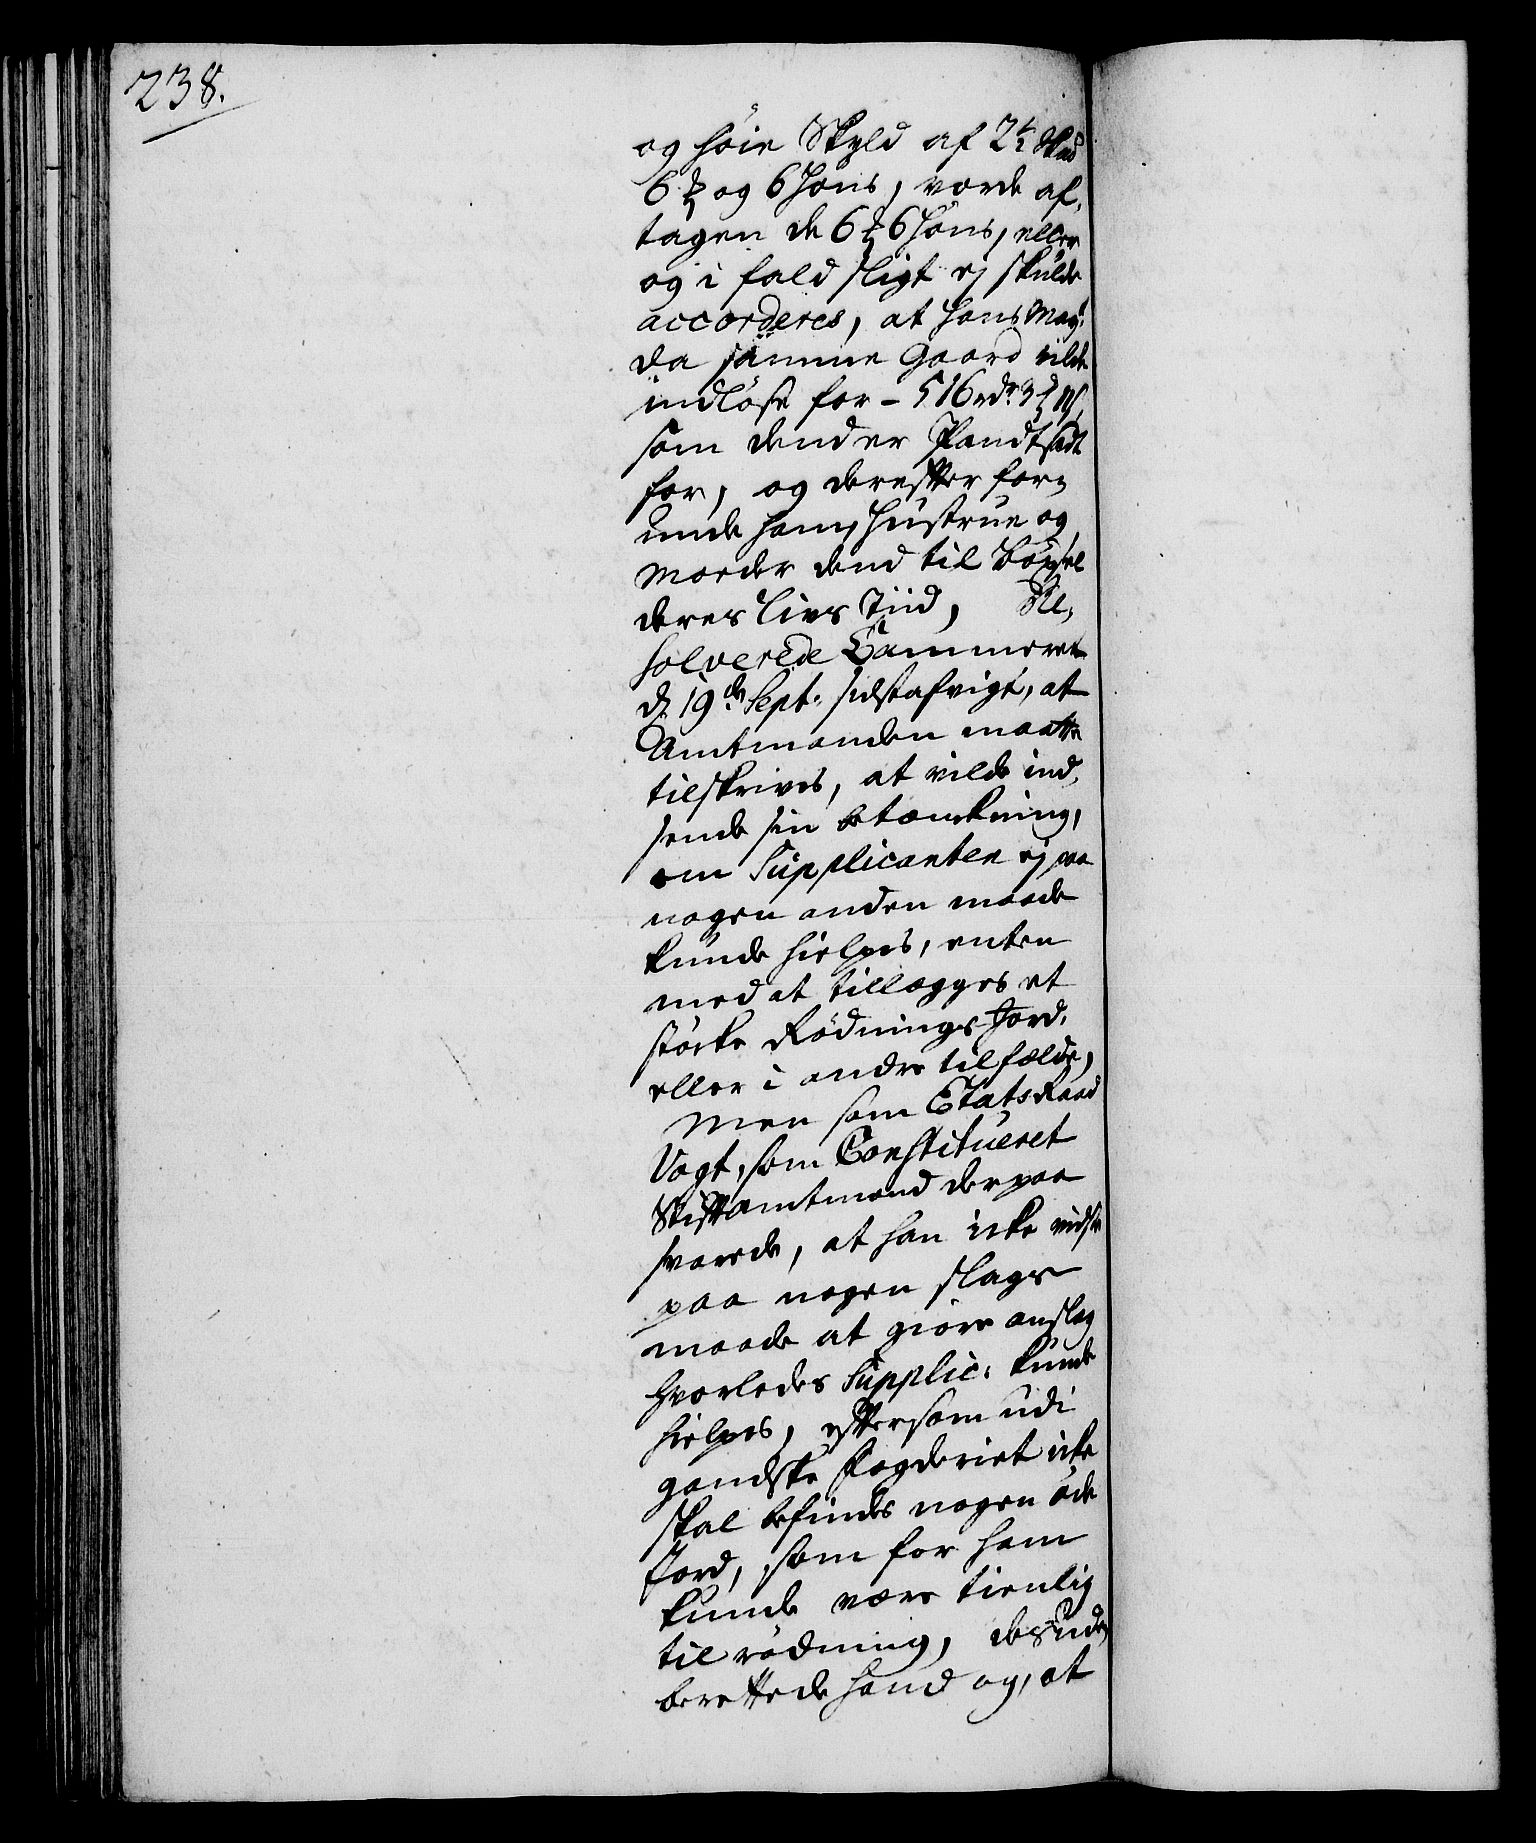 238.
og höie Skyld af 2½ Skud
6 ℔ og 6 Höns, vorde af,
tagen de 6 ℔ 6 Höns, eller
og i fald sligt ej skulde
accorderes, at Hans May:
da samme Gaard vilde
indlöse for - 516 rdr 3
som dend er Pandtsadt
for, og derefter for,
unde ham, Hustrue og
Moder dend til böxsel
deres Livs Tiid, Re,
solverede Cammeret
d. 19de Sept. sidstafvigt, at
Amtmanden maatte
tilskrives, at vilde ind,
sende sin betænkning,
om Supplicanten ej paa
nogen anden maade
kunde hielpes, enten
med at tillægges et
støcke Rödnings-Jord,
eller i andre tilfælde,
Men som EtatsRaad
Vogt, som Constitueret
Stiftamtmand derpaa
svarede, at han icke vidste
paa nogen slags
maade at giöre anslag
hvorledes Supplic: kunde
hielpes, eftersom udi
gandske Fogderiet icke
skal befindes nogen öde
Jord, som for ham
kunde være tienlig
til rödning, desuden
berettede hand og, at